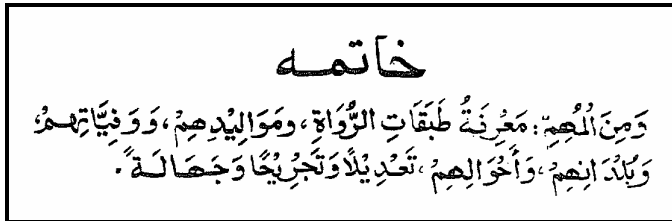 خاتمه
وَمِنَ الْمُهِمِّ: مَعْرِفَةُ طَبَقَاتِ الرُّوَاةِ، وَمَوَالِيْدِهِمْ، وَوَفِيَّاتِهِمْ،
وَبُلْدَانِهِمْ، وَأَحْوَالِهِمْ، تَعْدِيْلًا وَتَجْرِيْحًا وَجَهَالَةً.